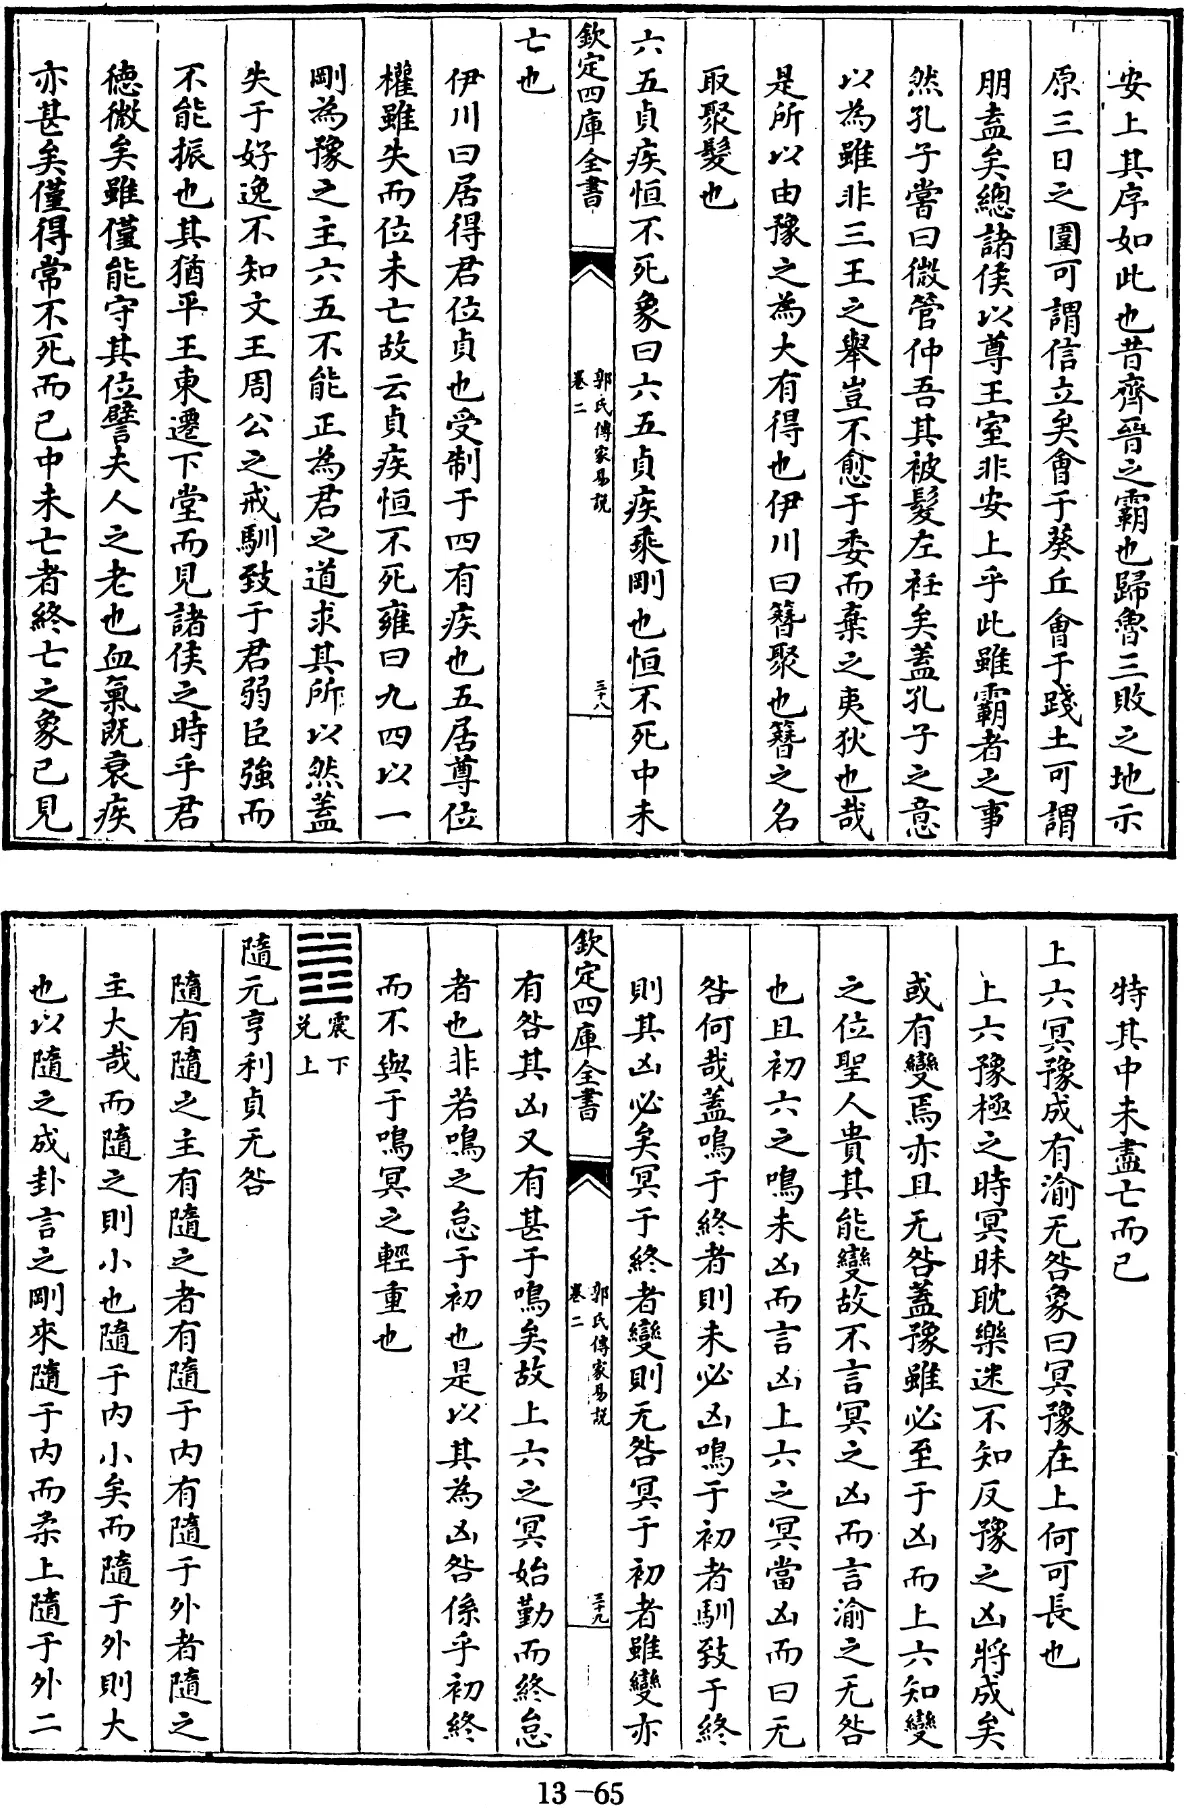 安上其序如此也昔齊晉之霸也歸魯三敗之地示
原三日之圍可謂信立矣會于葵丘會于踐土可謂
朋盍矣總諸侯以尊王室非安上乎此雖霸者之事
然孔子嘗曰微管仲吾其被髮左衽矣蓋孔子之意
以為雖非三王之舉豈不愈于委而棄之夷狄也哉
是所以由豫之為大有得也伊川曰簪聚也簪之名
取聚髮也
六五貞疾恒不死象曰六五貞疾乘剛也恒不死中未
欽定四庫全書
郭氏傳家易說
卷二
三十八
亡也
伊川曰居得君位貞也受制于四有疾也五居尊位
權雖失而位未亡故云貞疾恒不死雍曰九四以一
剛為豫之主六五不能正為君之道求其所以然蓋
失于好逸不知文王周公之戒馴致于君弱臣強而
不能振也其猶平王東遷下堂而見諸侯之時乎君
德微矣雖僅能守其位譬夫人之老也血氣既衰疾
亦甚矣僅得常不死而已中未亡者終亡之象已見
特其中未盡亡而已
上六冥豫成有渝无咎象曰冥豫在上何可長也
上六豫極之時冥昧耽樂迷不知反豫之凶將成矣
或有變焉亦且无咎蓋豫雖必至于凶而上六知變
之位聖人貴其能變故不言冥之凶而言渝之无咎
也且初六之鳴未凶而言凶上六之冥當凶而曰无
咎何哉蓋鳴于終者則未必凶鳴于初者馴致于終
則其凶必矣冥于終者變則无咎冥于初者雖變亦
欽定四庫全書
郭氏傳家易說
卷二
三十九
有咎其凶又有甚于鳴矣故上六之冥始勤而終怠
者也非若鳴之怠于初也是以其為凶咎係乎初終
而不與于鳴冥之輕重也
震下
兌上
隨元亨利貞无咎
隨有隨之主有隨之者有隨于內有隨于外者隨之
主大哉而隨之則小也隨于內小矣而隨于外則大
也以隨之成卦言之剛來隨于內而柔上隨于外二
13-65